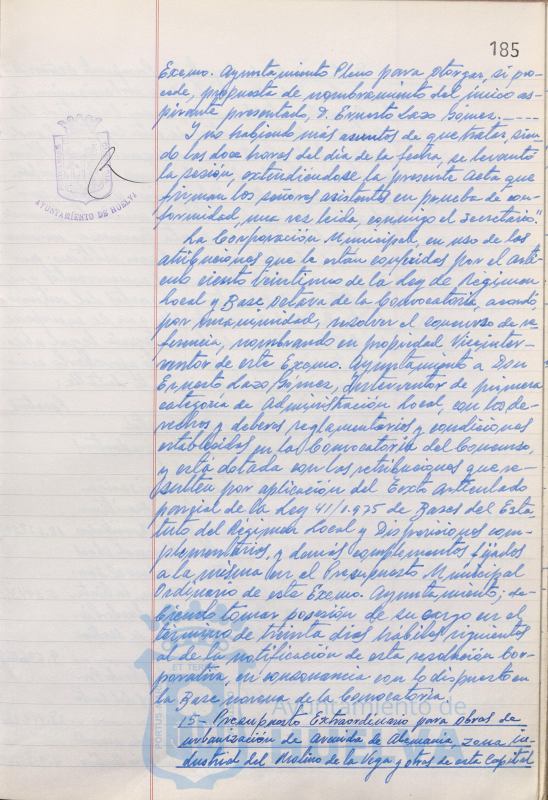 185
Excmo. Ayuntamiento Pleno para otorgar, si pro-
cede, propuesta de nombramiento del único as-
pirante presentado, D. Ernesto Lazo Gómez.----
Y no habiendo más asuntos de que tratar, sien-
do las doce horas del día de la fecha, se levantó
la sesión, extendiéndose la presente Acta que
firman los señores asistentes en prueba de con-
formidad, una vez leída, conmigo el Secretario."
AYUNTAMIENTO DE HUELVA
La Corporación Municipal, en uso de las
atribuciones que le están conferidas por el artí-
culo ciento veintiuno de la Ley de Régimen
Local y Base octava de la Convocatoria, acordó
por unanimidad, resolver el concurso de re-
ferencia, nombrando en propiedad Viceinter-
ventor de este Excmo. Ayuntamiento a Don
Ernesto Lazo Gómez, Interventor de primera
categoría de Administración Local, con los de-
rechos y deberes reglamentarios y condiciones
establecidas en la Convocatoria del Concurso,
y está dotada con las retribuciones que re-
sulten por aplicación del Texto Articulado
parcial de la Ley 41/1.975 de Bases del Esta-
tuto del Régimen Local y Disposiciones com-
plementarias, y demás complementos fijados
a la misma en el Presupuesto Municipal
Ordinario de este Excmo. Ayuntamiento; de-
biendo tomar posesión de su cargo en el
término de treinta días hábiles siguientes
al de la notificación de esta resolución Cor-
porativa, en consonancia con lo dispuesto en
la Base novena de la Convocatoria.
15- Presupuesto Extraordinario para obras de
urbanización de Avenida de Alemania, zona in-
dustrial del Molino de la Vega y otras de esta Capital
ET TERR
PORTUS
Ayuntamiento de
HUELVA